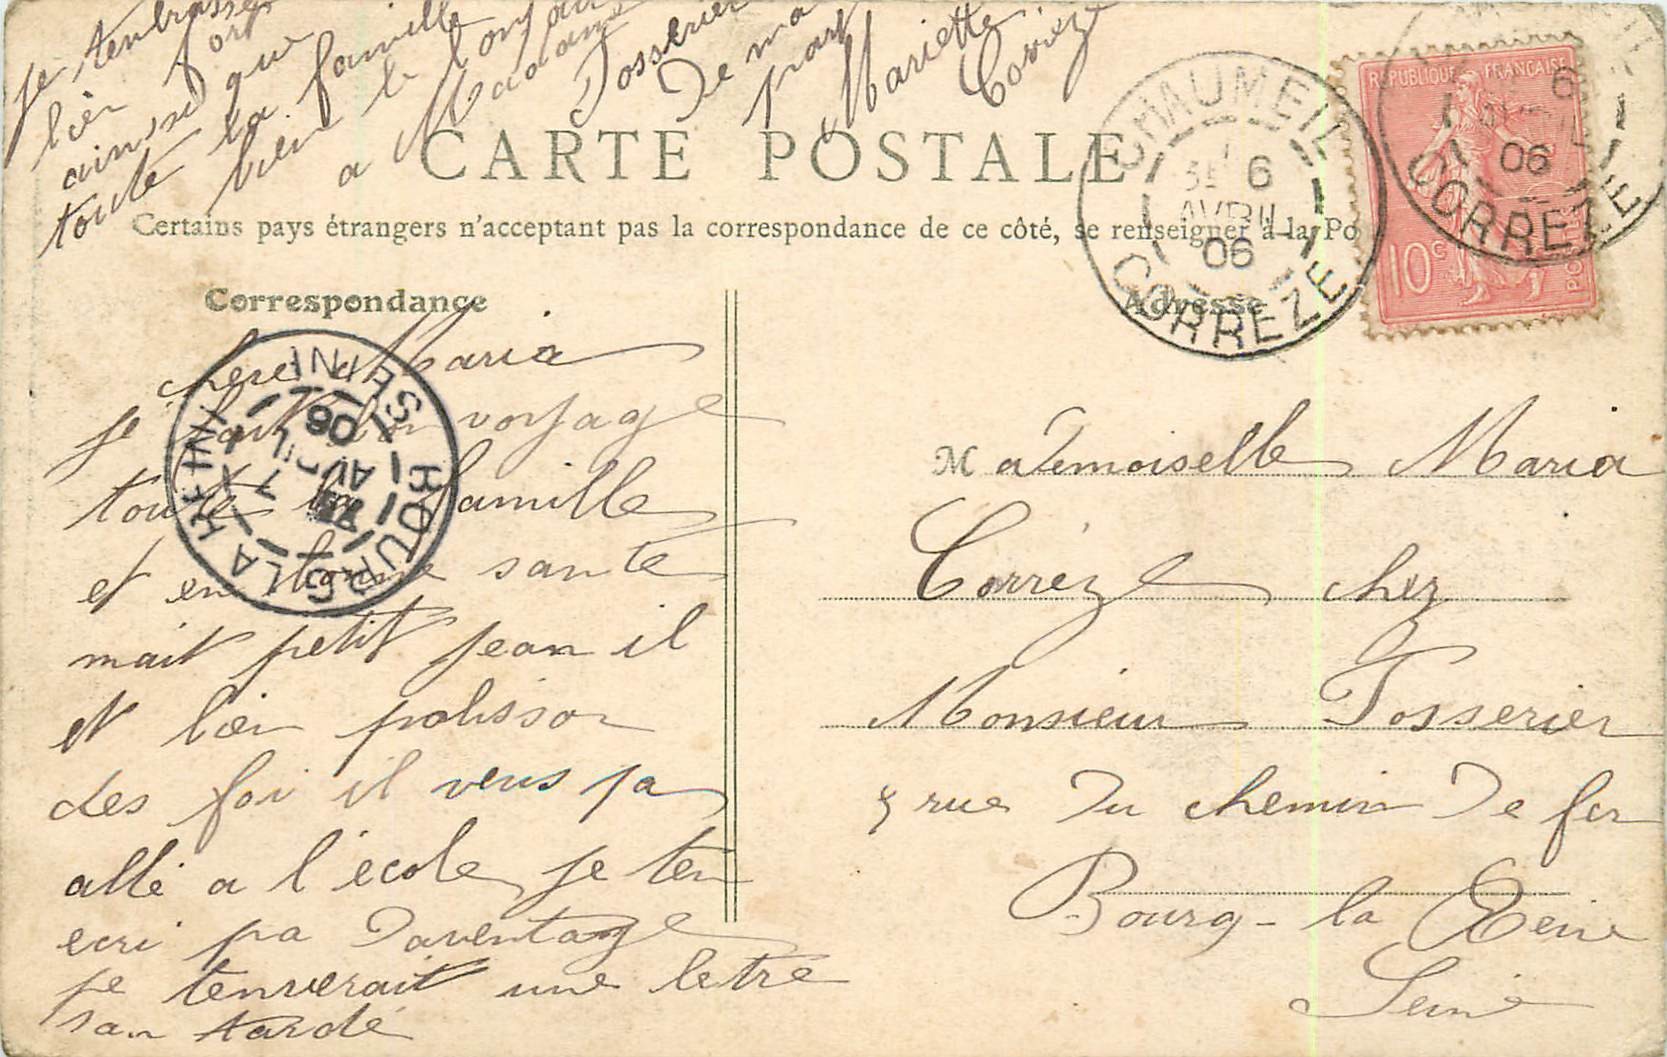 je tembrasse
bien fort
ainsi que
toute la famille
bien le bonjour
a Madame
Tosserier
De ma
part
Mariette
Corrèze
CARTE POSTALE
Certains pays étrangers n'acceptent pas la correspondance de ce côté, se renseigner à la Po
Correspondance
Adresse
CHAUMEIL
6
AVRIL
06
CORREZE
REPUBLIQUE FRANÇAISE
10c
POSTES
6
06
CORREZE
BOURG LA REINE
SEINE
7
AVRIL
06
chere Maria
je fait bon voyage
toute la famille
et en bonne sante
mait petit jean il
et bien polisson
des foi il veus pa
allé a l'école je ten
ecri pa Daventage
je tenverait une letre
san tardé
Mademoiselle Maria
Corrèze chez
Monsieur Tosserier
5 rue Du chemin De fer
Bourg-la Reine
Seine